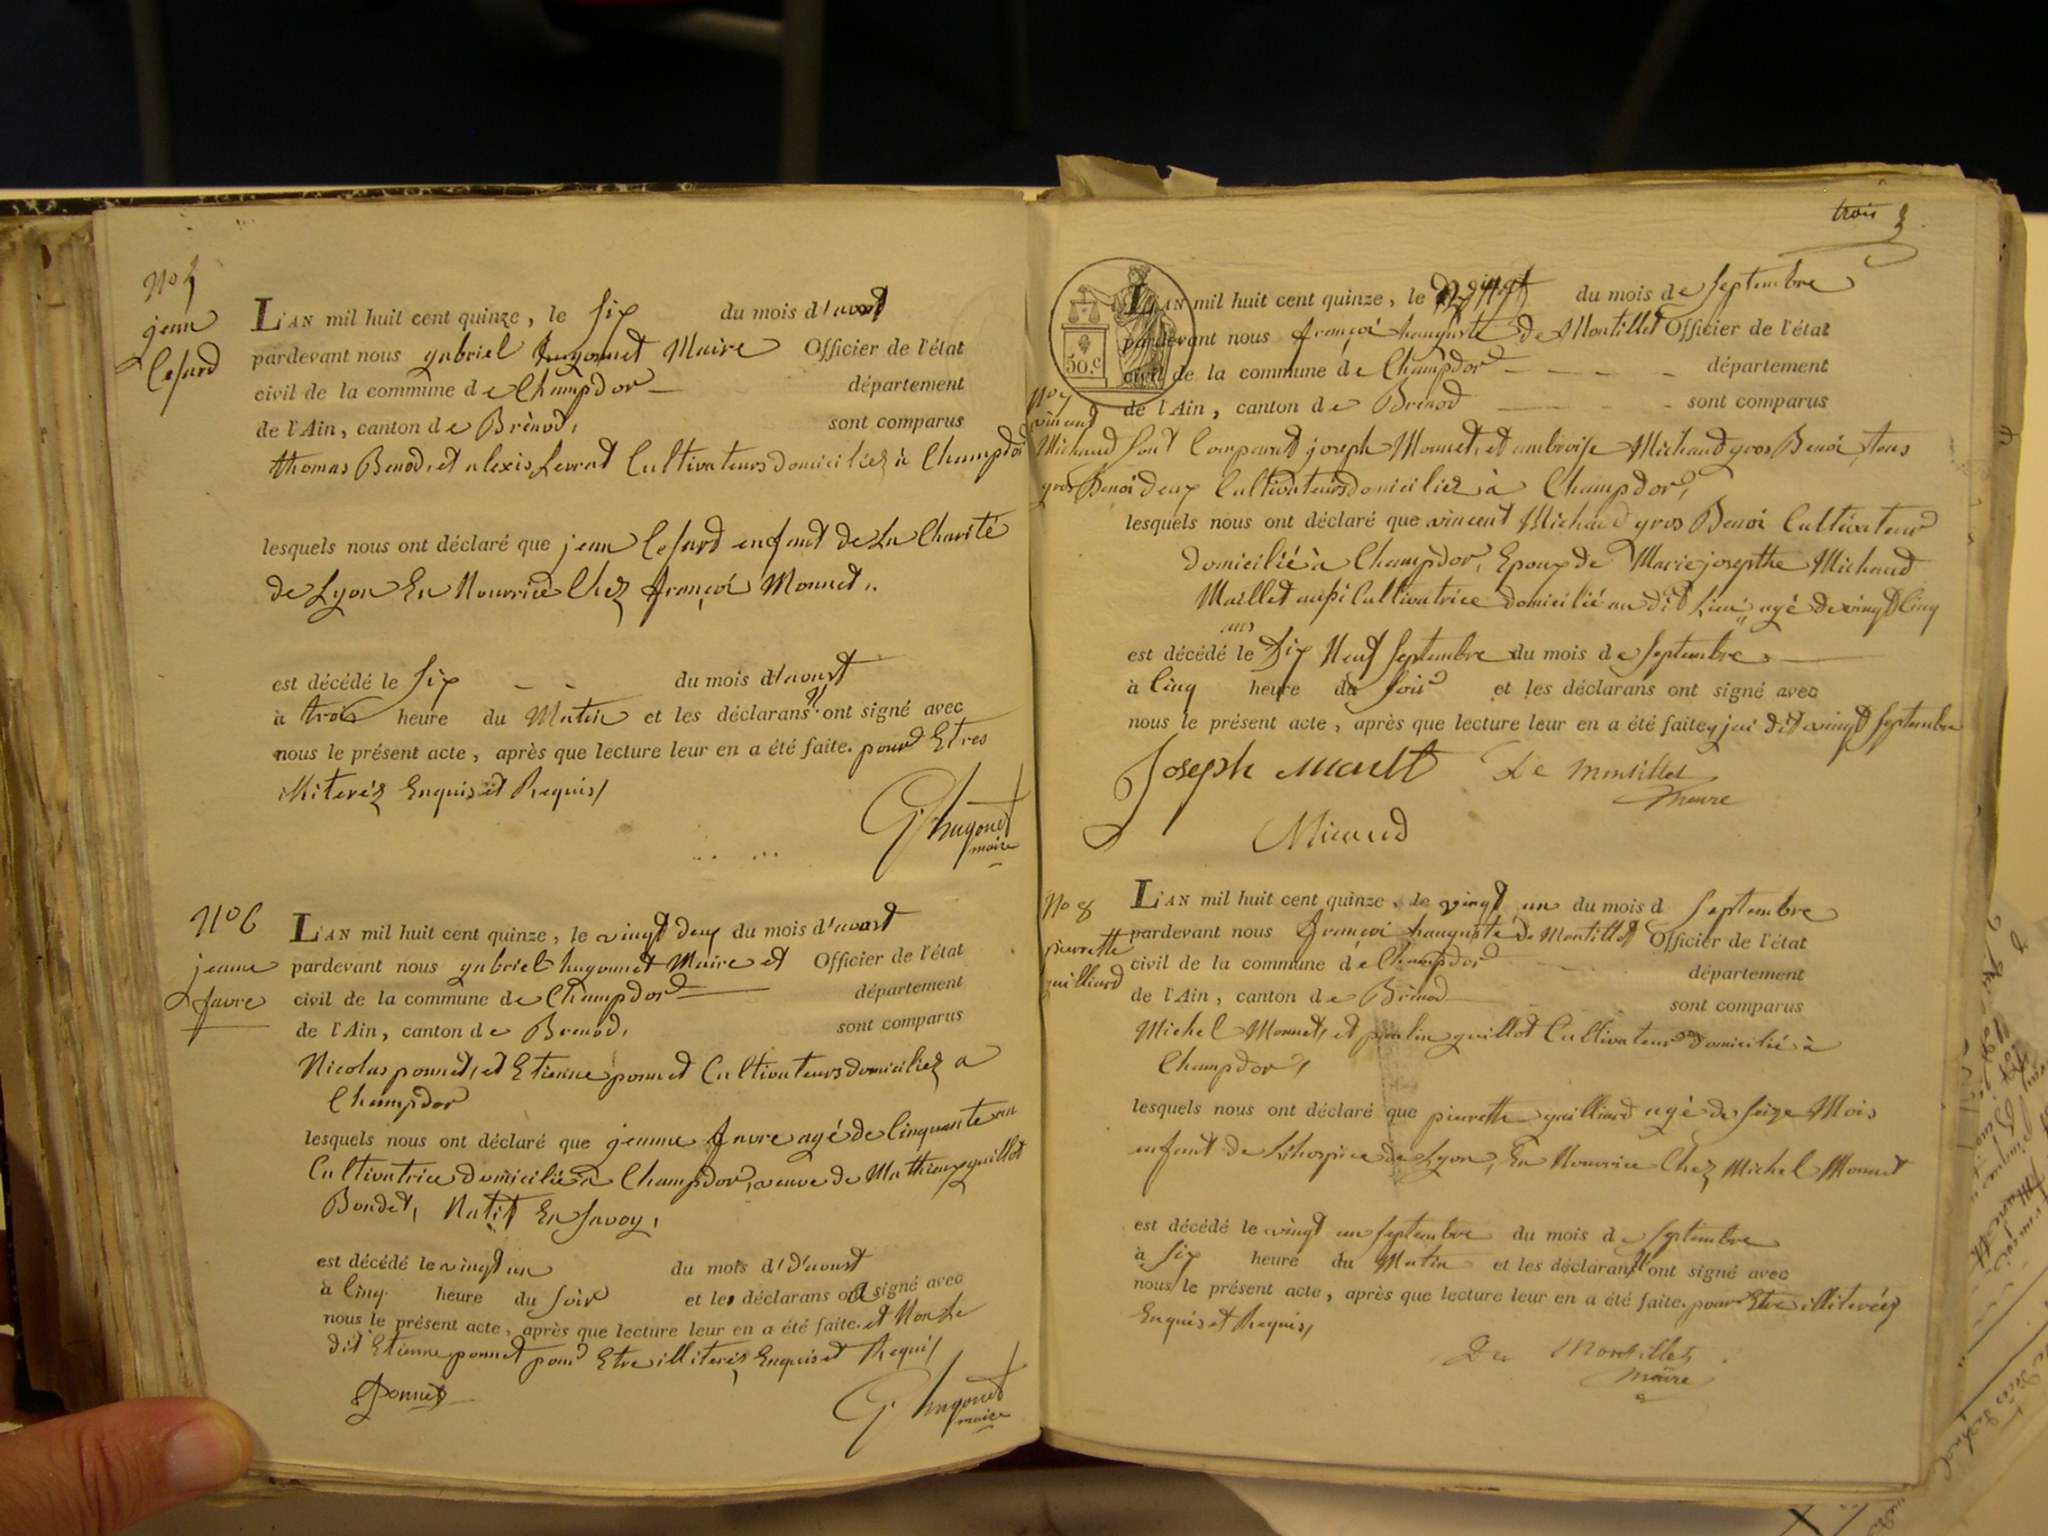 No 5
jean
Cesard
L'AN mil huit cent quinze, le six du mois d'avout
pardevant nous gabriel hugonnet Maire Officier de l'état
civil de la commune de Champdor département
de l'Ain, canton de Brénod, sont comparus
thomas Benod, et alexis Levrat Cultivateurs domiciliez à Champdor
lesquels nous ont déclaré que jean Cesard enfant de La Charité
de Lyon En Nourrice Chez françoi Monnet
est décédé le six du mois d'avoust
à trois heure du Matin et les déclarans n'ont signé avec
nous le présent acte, après que lecture leur en a été faite. pour Etres
illiteréz Enquis et Requis
G. hugonet
maire
No 6
jeanne
favre
L'AN mil huit cent quinze, le vingt deux du mois d'avout
pardevant nous gabriel hugonnet Maire et Officier de l'état
civil de la commune de Champdor département
de l'Ain, canton de Brenod, sont comparus
Nicolas ponnet, et Etienne ponnet Cultivateurs domiciliez a
Champdor
lesquels nous ont déclaré que jeanne favre agé de Cinquante an
Cultivatrice domicilié à Champdor, veuve de Mathieux guillot
Bondet, Natif En Savoy,
est décédé le vingt un du mois d'd'avoust
à Cinq heure du soir et les déclarans ont signé avec
nous le présent acte, après que lecture leur en a été faite. et Non le
dit Etienne ponnet pour Etre illiteréz Enquis et Requis
Ponnet
G. hugonet
maire
trois 3.
50.c
L'AN mil huit cent quinze, le vingt du mois de Septembre
pardevant nous françoi hauguste de Montillet Officier de l'état
civil de la commune de Champdor département
de l'Ain, canton de Brénod sont comparus
No 7
vincent
Michaud
gros Benoi
sont Comparut joseph Monnet, et ambroise Michaud gros Benoi tous
deux Cultivateurs domiciliez à Champdor,
lesquels nous ont déclaré que vincent Michaud gros Benoi Cultivateur
domicilié à Champdor, Epoux de Marie josepthe Michaud
Maillet aussi Cultivatrice domicilié au dit Lieu agé de vingt Cinq
ans
est décédé le Dix Neuf Septembre du mois de Septembre
à Cinq heure du soir et les déclarans ont signé avec
nous le présent acte, après que lecture leur en a été faite, jai dit vingt Septembre
Joseph De Montillet
maire
Micaud
No 8
pierrette
guilliard
L'AN mil huit cent quinze, le vingt un du mois d Septembre
pardevant nous françoi hauguste de Montillet Officier de l'état
civil de la commune de Champdor département
de l'Ain, canton de Brénod sont comparus
Michel Monnet, et paulin guillot Cultivateur domicilié à
Champdor,
lesquels nous ont déclaré que pierrette guilliard agé de seize Mois
enfant de L'hospice de Lyon, En Nourrice Chez Michel Monnet
est décédé le vingt un Septembre du mois de Septembre
à six heure du Matin et les déclarans n'ont signé avec
nous le présent acte, après que lecture leur en a été faite. pour Etre illiteréez
Enquis et Requis,
De Montillet
maire